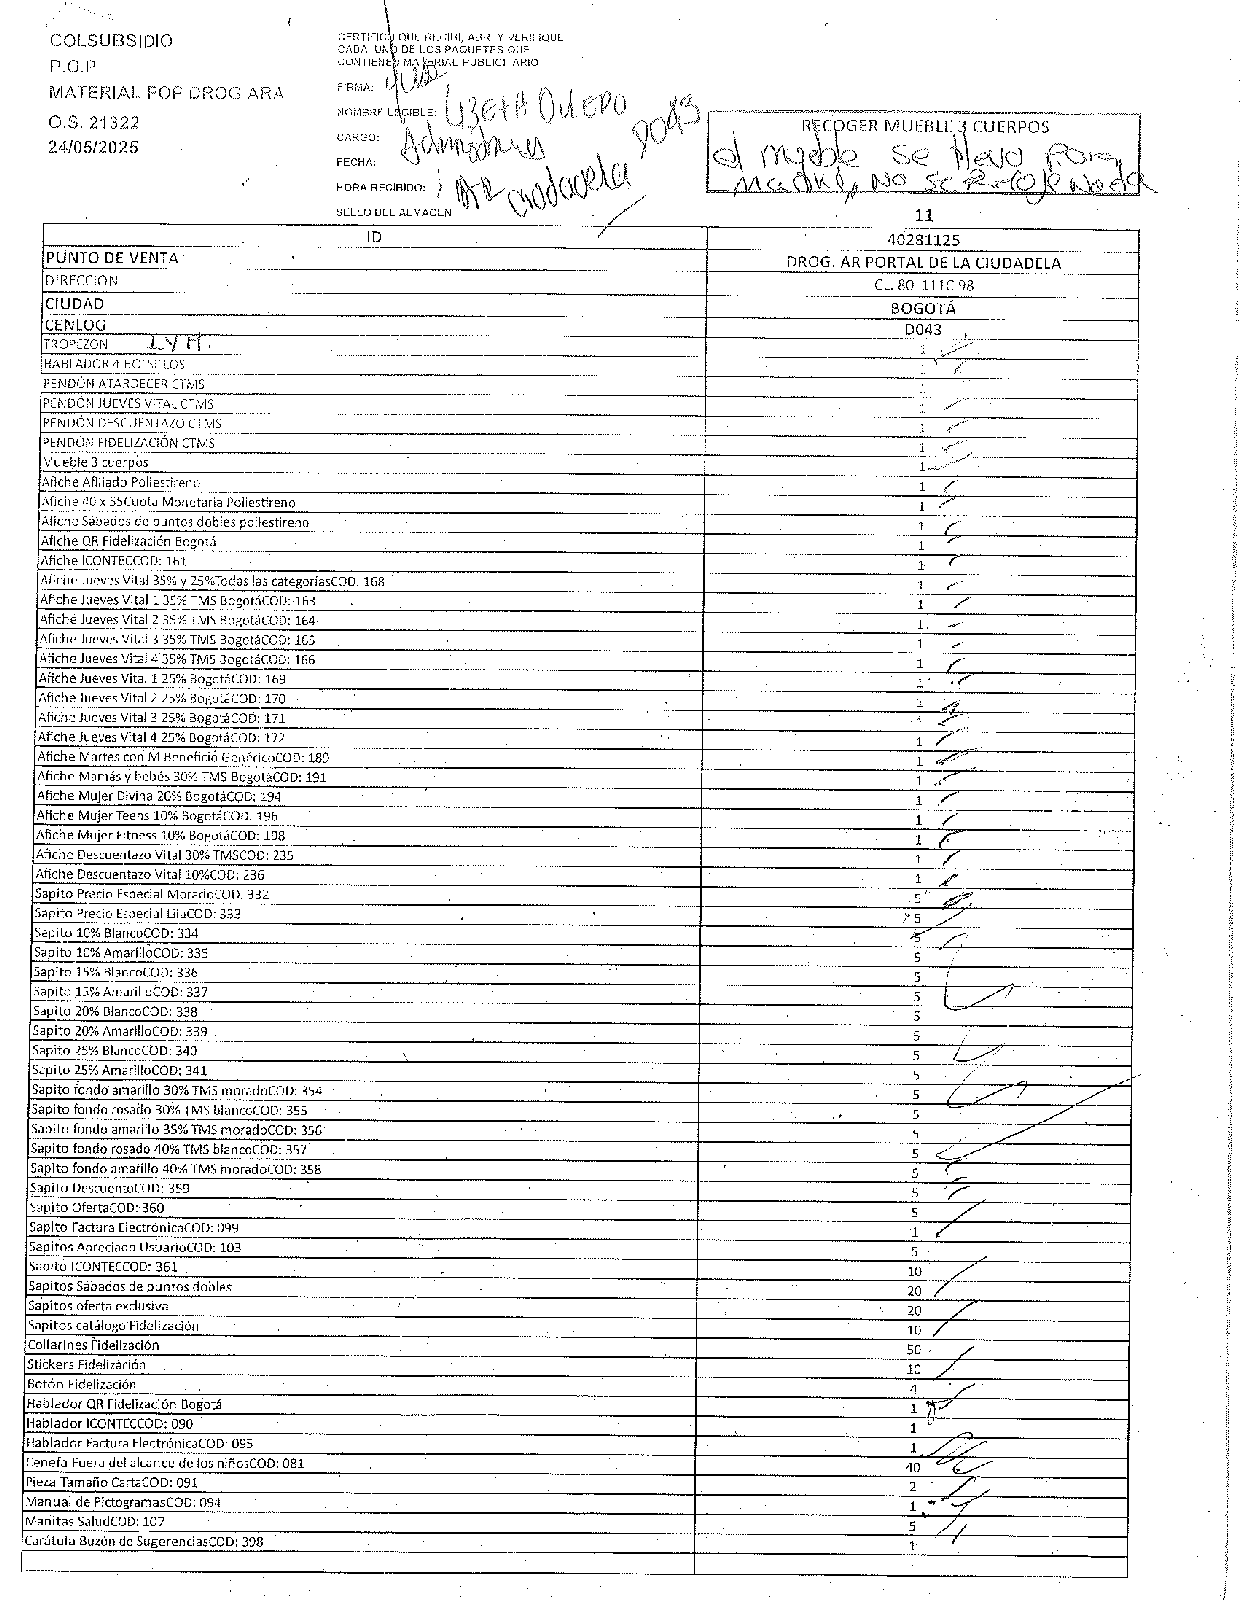 COLSUBSIDIO
P.O.P
MATERIAL POP DROG ARA
O.S. 21322
24/05/2025
CERTIFICO QUE RECIBI, ABRI Y VERIFIQUE
CADA UNO DE LOS PAQUETES QUE
CONTIENEN MATERIAL PUBLICITARIO
FIRMA:
NOMBRE LEGIBLE:
CARGO:
FECHA:
HORA RECIBIDO:
SELLO DEL ALMACEN
Ciudadela D043
RECOGER MUEBLE 3 CUERPOS
el mueble se llevo para
11
ID 40281125
PUNTO DE VENTA DROG. AR PORTAL DE LA CIUDADELA
DIRECCION CL 80 111C 98
CIUDAD BOGOTÁ
CENLOG D043
TROPEZON 1
HABLADOR 4 BOLSILLOS 1
PENDÓN ATARDECER CTMS 1
PENDÓN JUEVES VITAL CTMS 1
PENDÓN DESCUENTAZO CTMS 1
PENDÓN FIDELIZACIÓN CTMS 1
Mueble 3 cuerpos 1
Afiche Afiliado Poliestireno 1
Afiche 40 x 55Cuota Monetaria Poliestireno 1
Afiche Sábados de puntos dobles poliestireno 1
Afiche QR Fidelización Bogotá 1
Afiche ICONTECCOD: 161 1
Afiche Jueves Vital 35% y 25%Todas las categoríasCOD: 168 1
Afiche Jueves Vital 1 35% TMS BogotáCOD: 163 1
Afiche Jueves Vital 2 35% TMS BogotáCOD: 164 1
Afiche Jueves Vital 3 35% TMS BogotáCOD: 165 1
Afiche Jueves Vital 4 35% TMS BogotáCOD: 166 1
Afiche Jueves Vital 1 25% BogotáCOD: 169 1
Afiche Jueves Vital 2 25% BogotáCOD: 170 1
Afiche Jueves Vital 3 25% BogotáCOD: 171 1
Afiche Jueves Vital 4 25% BogotáCOD: 172 1
Afiche Martes con M Beneficio GenéricoCOD: 189 1
Afiche Mamás y bebés 30% TMS BogotáCOD: 191 1
Afiche Mujer Divina 20% BogotáCOD: 194 1
Afiche Mujer Teens 10% BogotáCOD: 196 1
Afiche Mujer Fitness 10% BogotáCOD: 198 1
Afiche Descuentazo Vital 30% TMSCOD: 235 1
Afiche Descuentazo Vital 10%COD: 236 1
Sapito Precio Especial MoradoCOD: 332 5
Sapito Precio Especial LilaCOD: 333 5
Sapito 10% BlancoCOD: 334 5
Sapito 10% AmarilloCOD: 335 5
Sapito 15% BlancoCOD: 336 5
Sapito 15% AmarilloCOD: 337 5
Sapito 20% BlancoCOD: 338 5
Sapito 20% AmarilloCOD: 339 5
Sapito 25% BlancoCOD: 340 5
Sapito 25% AmarilloCOD: 341 5
Sapito fondo amarillo 30% TMS moradoCOD: 354 5
Sapito fondo rosado 30% TMS blancoCOD: 355 5
Sapito fondo amarillo 35% TMS moradoCOD: 356 5
Sapito fondo rosado 40% TMS blancoCOD: 357 5
Sapito fondo amarillo 40% TMS moradoCOD: 358 5
Sapito DescuentoCOD: 359 5
Sapito OfertaCOD: 360 5
Sapito Factura ElectrónicaCOD: 099 1
Sapitos Apreciado UsuarioCOD: 103 5
Sapito ICONTECCOD: 361 10
Sapitos Sábados de puntos dobles 20
Sapitos oferta exclusiva 20
Sapitos catálogo Fidelización 10
Collarines Fidelización 50
Stickers Fidelización 10
Botón Fidelización 4
Hablador QR Fidelización Bogotá 1
Hablador ICONTECCOD: 090 1
Hablador Factura ElectrónicaCOD: 095 1
Cenefa Fuera del alcance de los niñosCOD: 081 40
Pieza Tamaño CartaCOD: 091 2
Manual de PictogramasCOD: 094 1
Manitas SaludCOD: 107 5
Carátula Buzón de SugerenciasCOD: 398 1